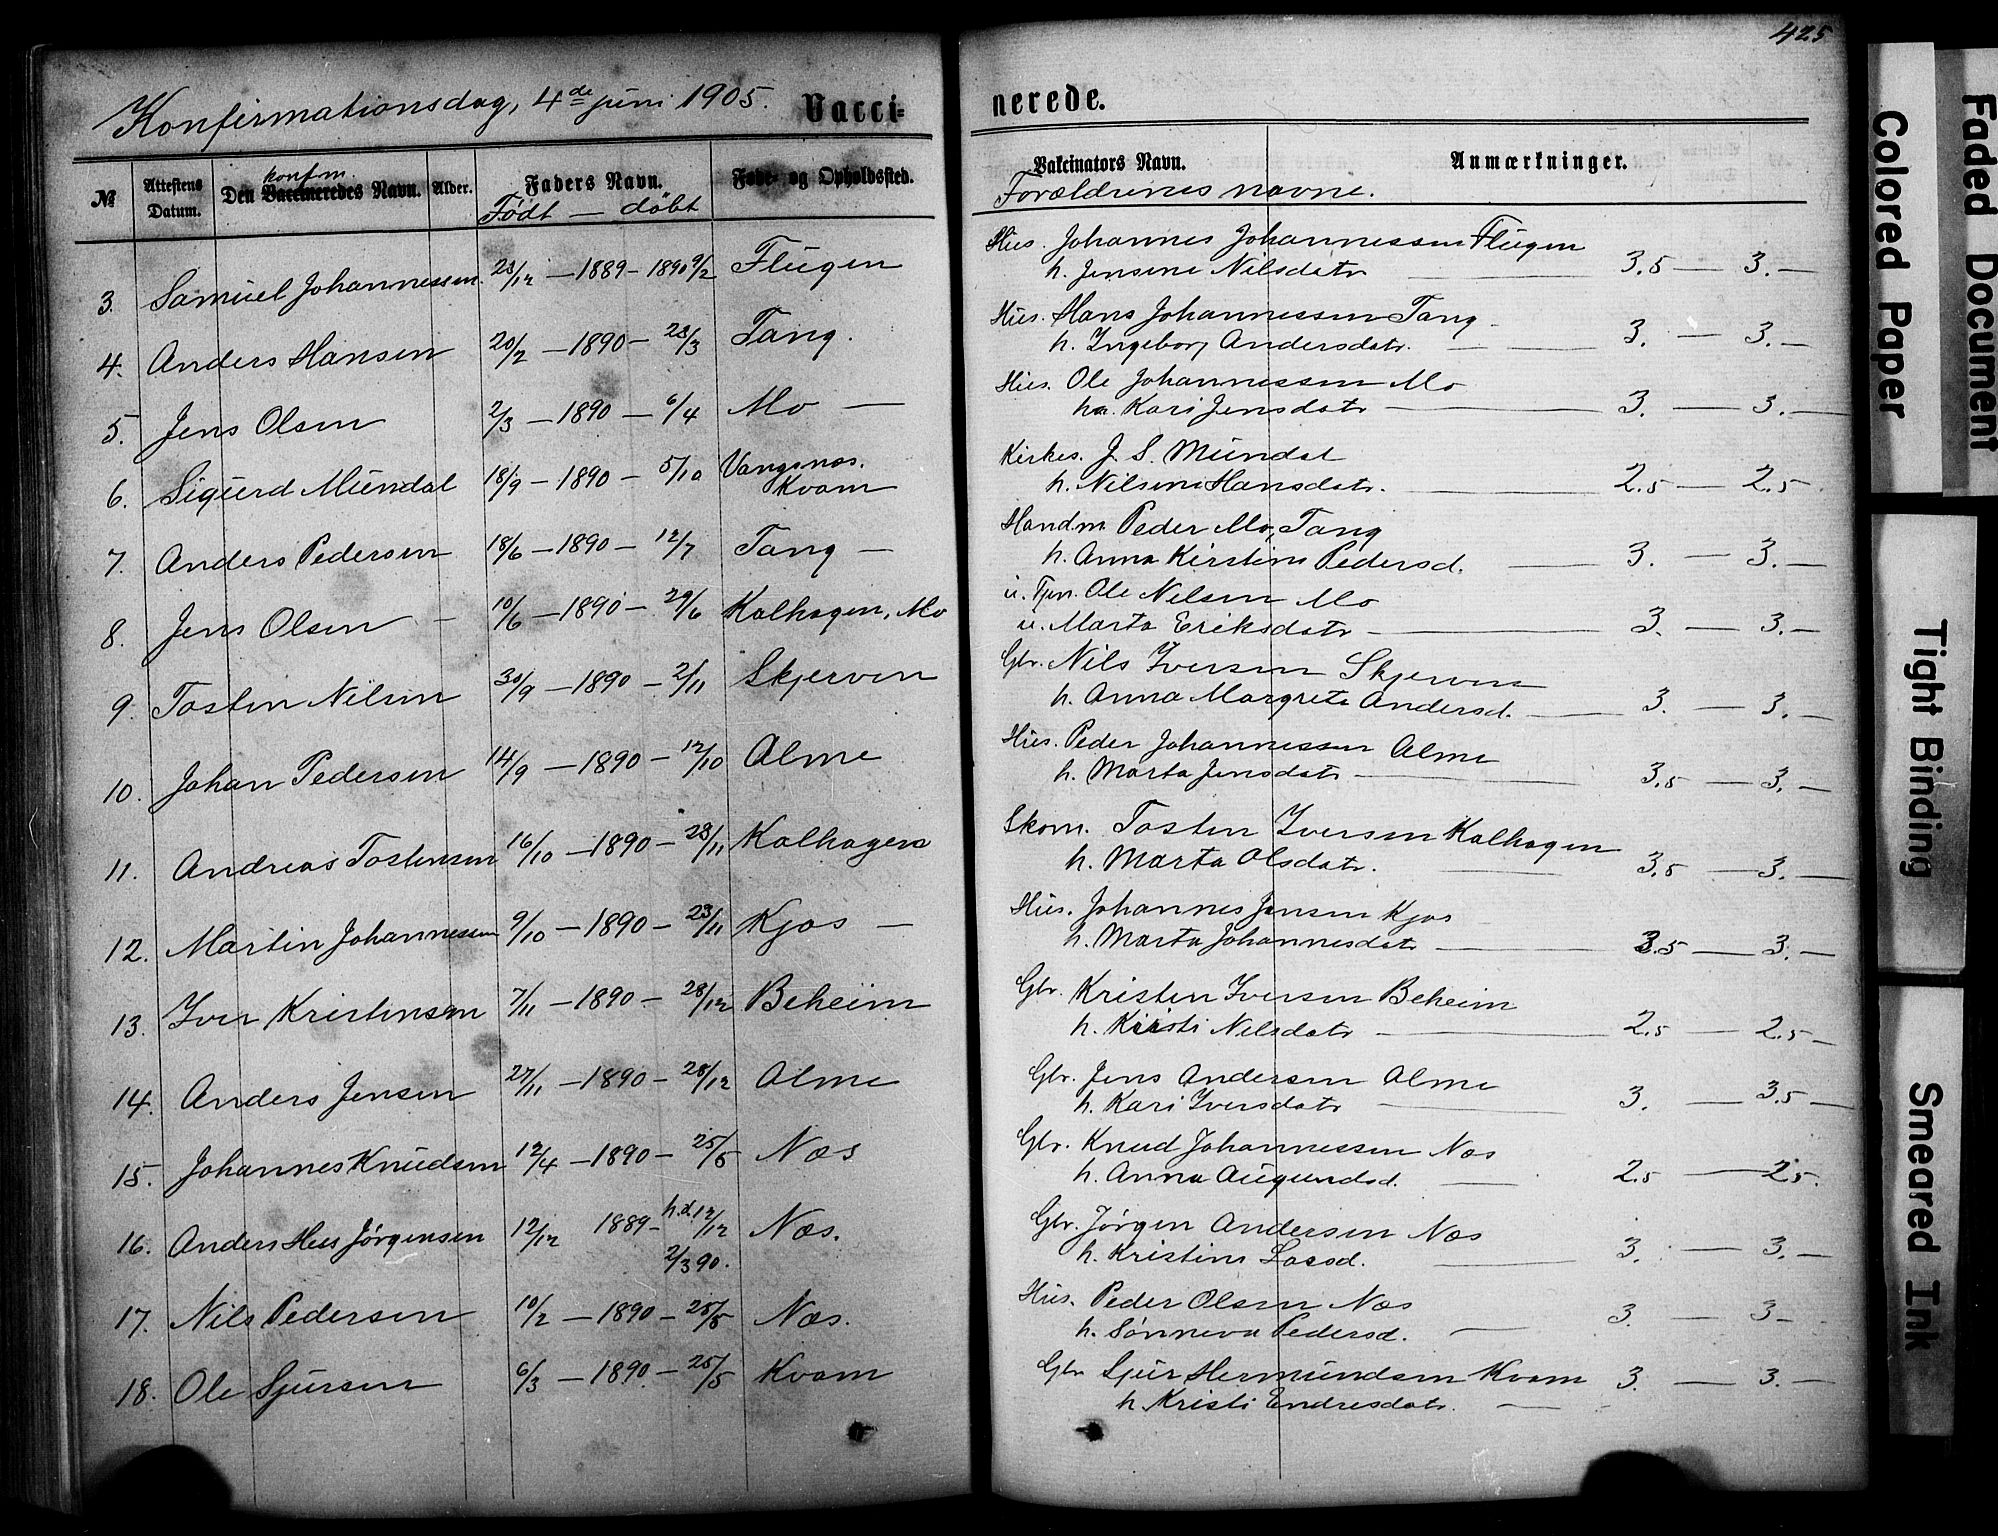 425
Konfirmationsdag, 4de juni 1905.
Vacci-
nerede.
№
Attestens Datum.
Den Vaccineredes Navn.
konfm.
Alder.
Faders Navn.
Født — döbt
Føde- og Opholdssted.
Vakcinators Navn.
Forældrenes navne.
Anmærkninger.
3. Samuel Johannessen. 28/12 — 1889 — 1890 9/2 Flugen
Hus. Johannes Johannessen Flugen
h. Jensine Nilsdatr 3.5 — 3. —
4. Anders Hansen 20/2 — 1890 — 23/3 Tang.
Hus. Hans Johannessen Tang
h. Ingeborg Andersdatr. — 3. — 3. —
5. Jens Olsen 2/3 — 1890 — 6/4 Mo —
Hus. Ole Johannessen Mo
ha. Kari Jensdatr — 3. — 3. —
6. Sigurd Mundal 18/9 — 1890 — 5/10 Vangsnæs. Kvam
Kirkes. J. S. Mundal
h. Nilsine Hansdatr. — 2.5 — 2.5
7. Anders Pedersen 18/6 — 1890 — 12/7 Tang —
Handm. Peder Mo, Tang
h. Anna Kirstine Pedersd. — 3. — 3. —
8. Jens Olsen — 10/6 — 1890 — 29/6 Kalhagen, Mo
u. Tjen. Ole Nelsen Mo
u. Marta Eriksdatr — 3. — 3. —
9. Tosten Nilsen 30/9 — 1890 — 2/11 Skjerven
Gbr. Nils Iversen Skjerven
h. Anna Margreta Andersd. — 3. — 3. —
10. Johan Pedersen 14/9 — 1890 — 12/10 Alme
Hus. Peder Johannessen Alme
h. Marta Jensdatr — 3.5 — 3. —
11. Andreas Tostensen 16/10 — 1890 — 23/11 Kalhagen
Skom. Tosten Iversen Kalhagen
h. Marta Olsdatr. — 3.5 — 3. —
12. Martin Johannessen 9/10 — 1890 — 23/11 Kjøs —
Hus. Johannes Jensen Kjøs
h. Marta Johannesdatr — 3.5 — 3. —
13. Iver Kristensen 7/11 — 1890 — 28/12 Beheim
Gbr. Kristen Iversen Beheim
h. Kristi Nilsdatr — 2.5 — 2.5 —
14. Anders Jensen 27/11 — 1890 — 28/12 Alme
Gbr. Jens Andersen Alme
h. Kari Iversdatr — 3. — 3.5 —
15. Johannes Knudsen 12/4 — 1890 — 25/5 Næs
Gbr. Knud Johannessen Næs
h. Anna Augundsd. — 2.5 — 2.5.
16. Anders Jørgensen 12/12 1889 — h.d. 12/12 Næs.
2/3 90.
Gbr. Jørgen Andersen Næs
h. Kristine Lassd. — 3. — 3. —
17. Nils Pedersen 10/2 — 1890 — 25/5 Næs.
Hus. Peder Olsen Næs
h. Sønneva Pedersd. — 3. — 3 —
18. Ole Sjursen 6/3 — 1890 — 25/5 Kvam
Gbr Sjur Hermundsen Kvam 3. — 3. —
h Kristi Endresdatr. —
Faded Document
Colored Paper
Tight Binding
Smeared Ink